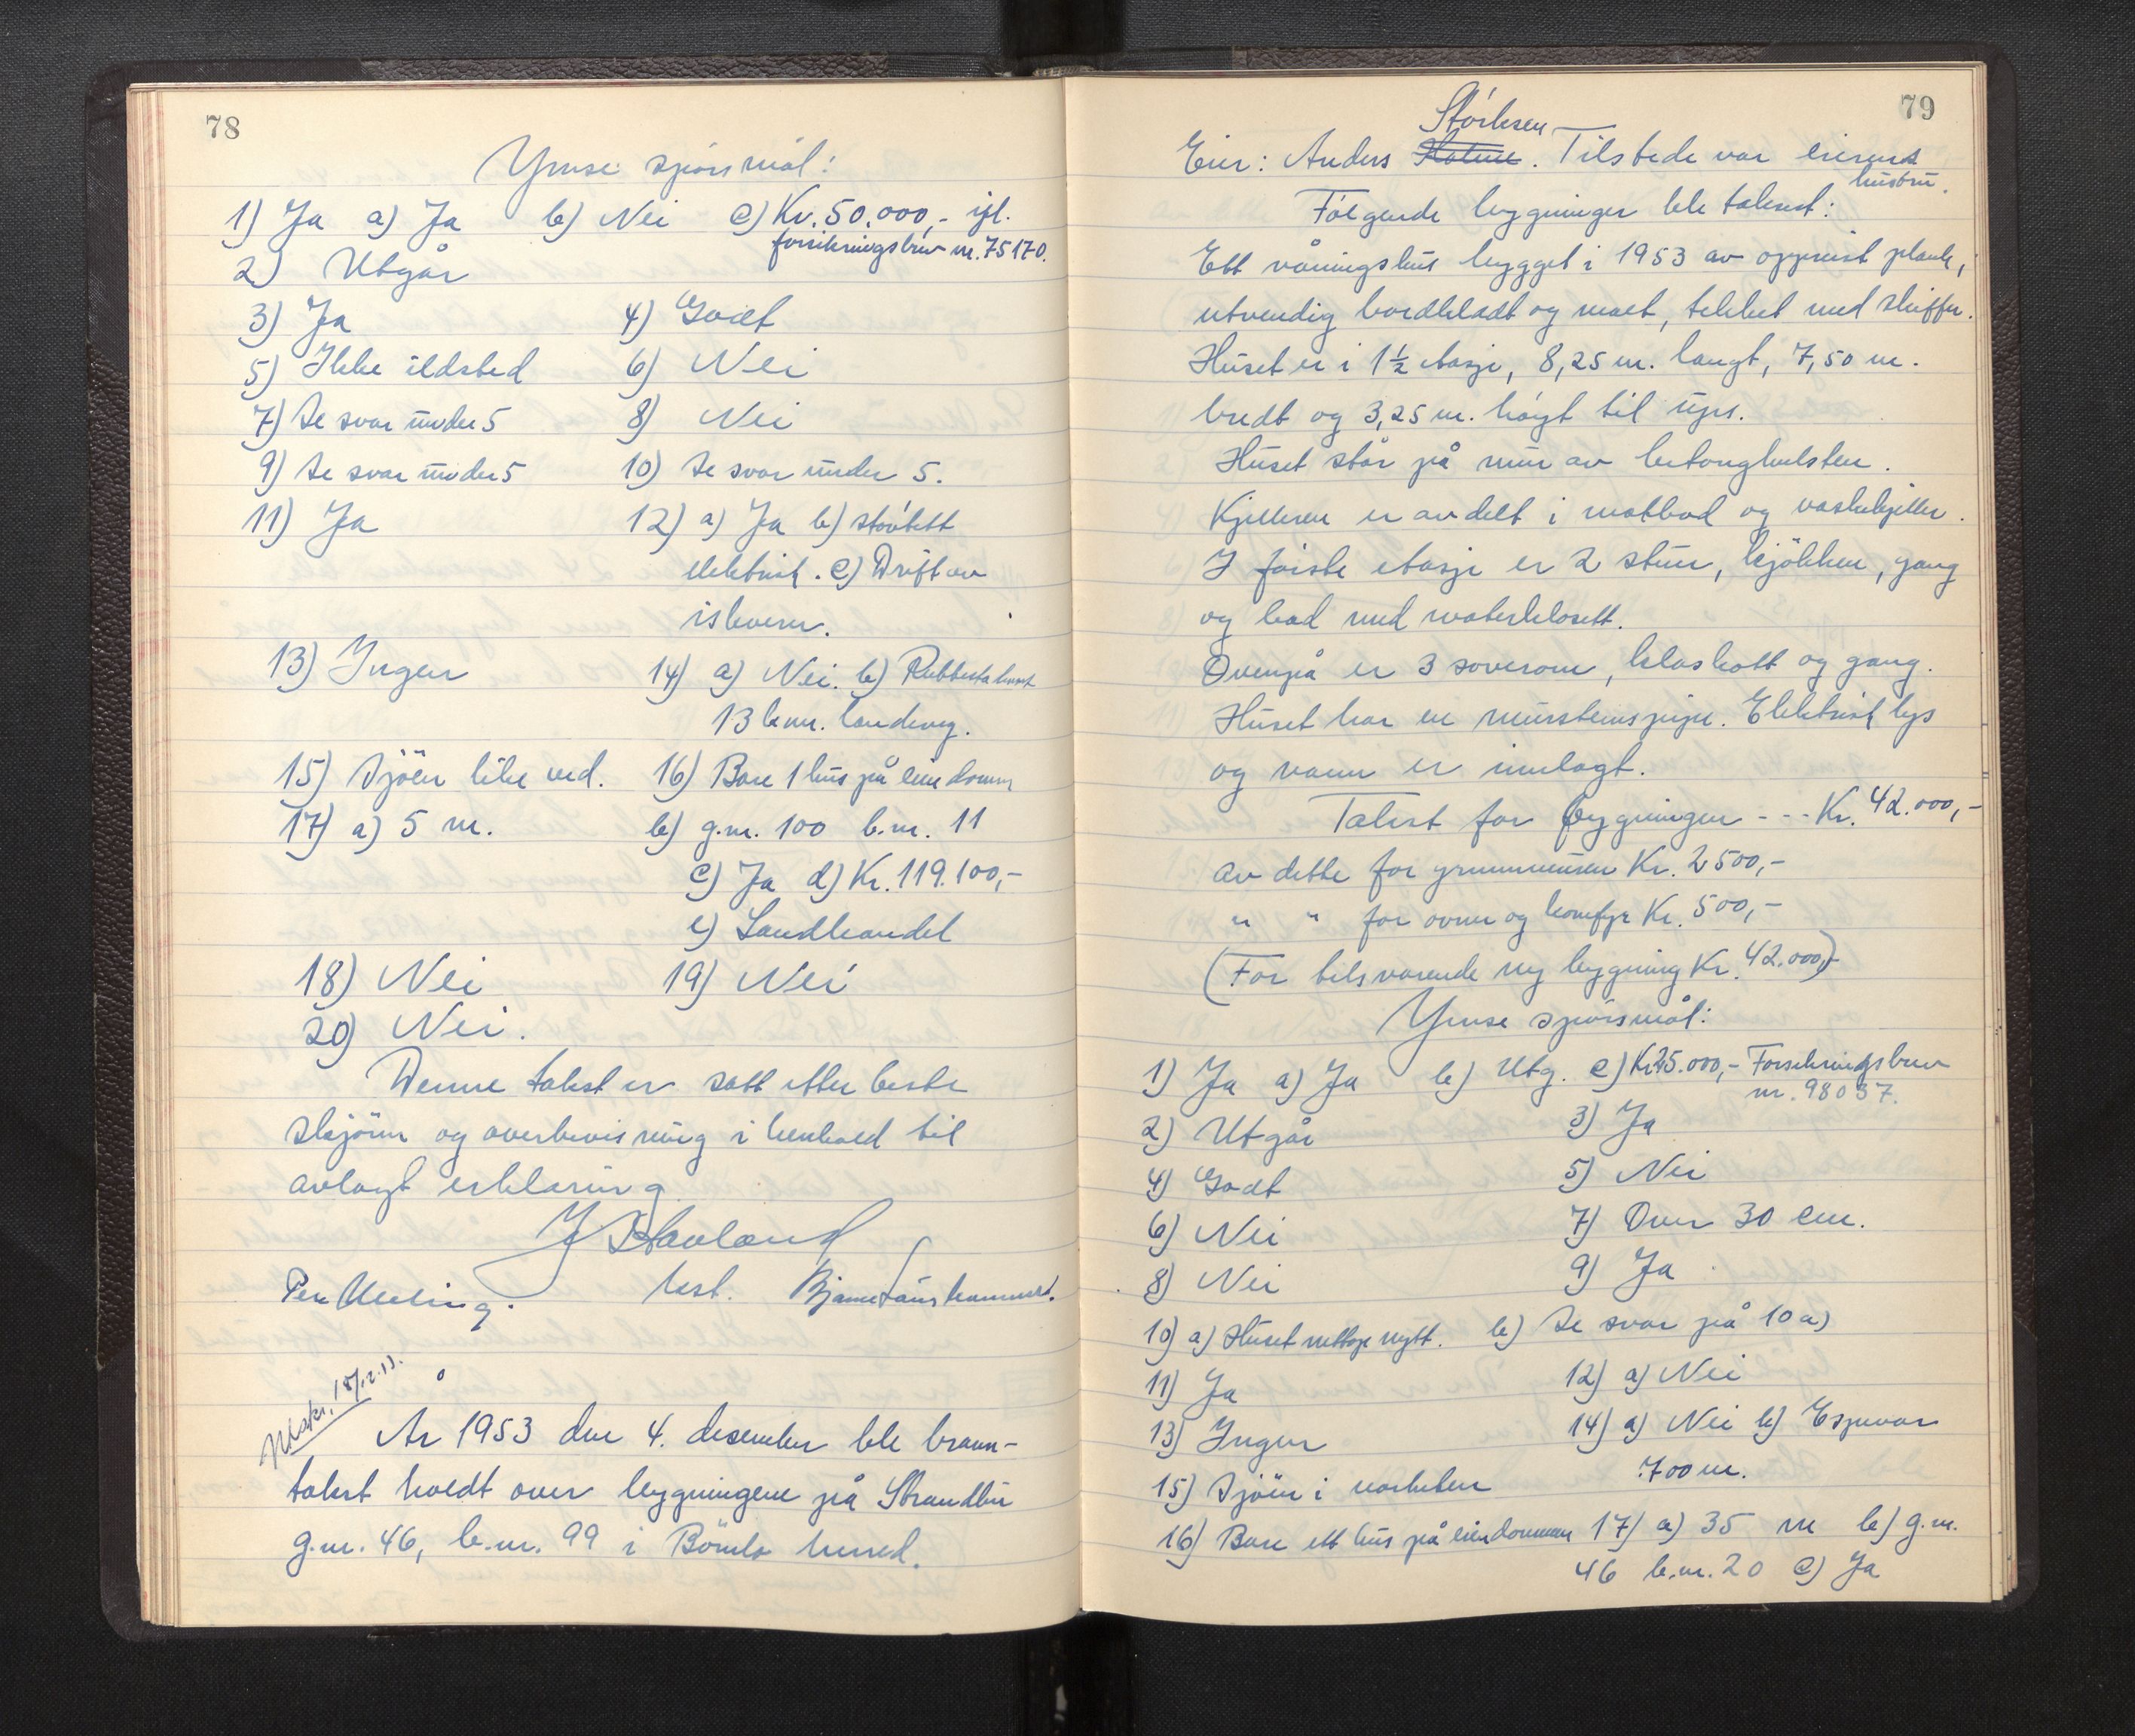 78
Ymse spørsmål:
1) Ja a) Ja b) Nei c) Kr. 50.000,- ifl.
forsikringsbrev nr. 75170.
2) Utgår
3) Ja 4) Godt
5) Ikke ildsted 6) Nei
7) Se svar under 5 8) Nei
9) Se svar under 5 10) Se svar under 5.
11) Ja 12) a) Ja b) støvtett
elektrisk. c) Drift av
iskvern.
13) Ingen 14) a) Nei. b) Rubbestadneset
13 km. landeveg.
15) Sjöen like ved. 16) Bare 1 hus på eiendommen
17) a) 5 m. b) g.nr. 100 b.nr. 11
c) Ja d) Kr. 119.100,-
e) Landhandel
18) Nei 19) Nei
20) Nei.
Denne takst er satt etter beste
skjönn og overbevisning i henhold til
avlagt erklæring
J Stavland
Per Meling. lest. Bjarne
Utskr. 18/12.53.
År 1953 den 4. desember ble brann-
takst holdt over bygningene på Strandbu
g.nr. 46, b.nr. 99 i Bömlo herred.
79
Störksen
Eier: Anders Holme. Tilstede var eierens
hustru.
Fölgende bygninger ble taksert:
Ett våningshus bygget i 1953 av oppreist plank,
utvendig bordkledt og malt, tekket med skiffer.
Huset er i 1½ etasje, 8,25 m. langt, 7,50 m.
bredt og 3,25 m. høyt til ups.
Huset står på mur av betonghulsten.
Kjelleren er avdelt i matbod og vaskekjeller.
I förste etasje er 2 stuer, kjökken, gang
og bad med waterklosett.
Ovenpå er 3 soverom, kleskott og gang.
Huset har en murstenspipe. Elektrisk lys
og vann er innlagt.
Takst for bygningen --- Kr. 42.000,-
av dette for grunnmuren Kr. 2500,-
" " for ovner og komfyr Kr. 500,-
(For tilsvarende ny bygning Kr. 42.000,-)
Ymse spørsmål:
1) Ja a) Ja b) Utg. c) Kr. 25.000,- Forsikringsbrev
nr. 98037.
2) Utgår 3) Ja
4) Godt 5) Nei
6) Nei 7) Over 30 cm.
8) Nei 9) Ja
10) a) Huset nettopp nytt. b) Se svar på 10 a)
11) Ja 12) a) Nei
13) Ingen 14) a) Nei b) Espevær
700 m.
15) Sjöen i nærheten
16) Bare ett hus på eiendommen 17) a) 35 m b) g.nr.
46 b.nr. 20 c) Ja